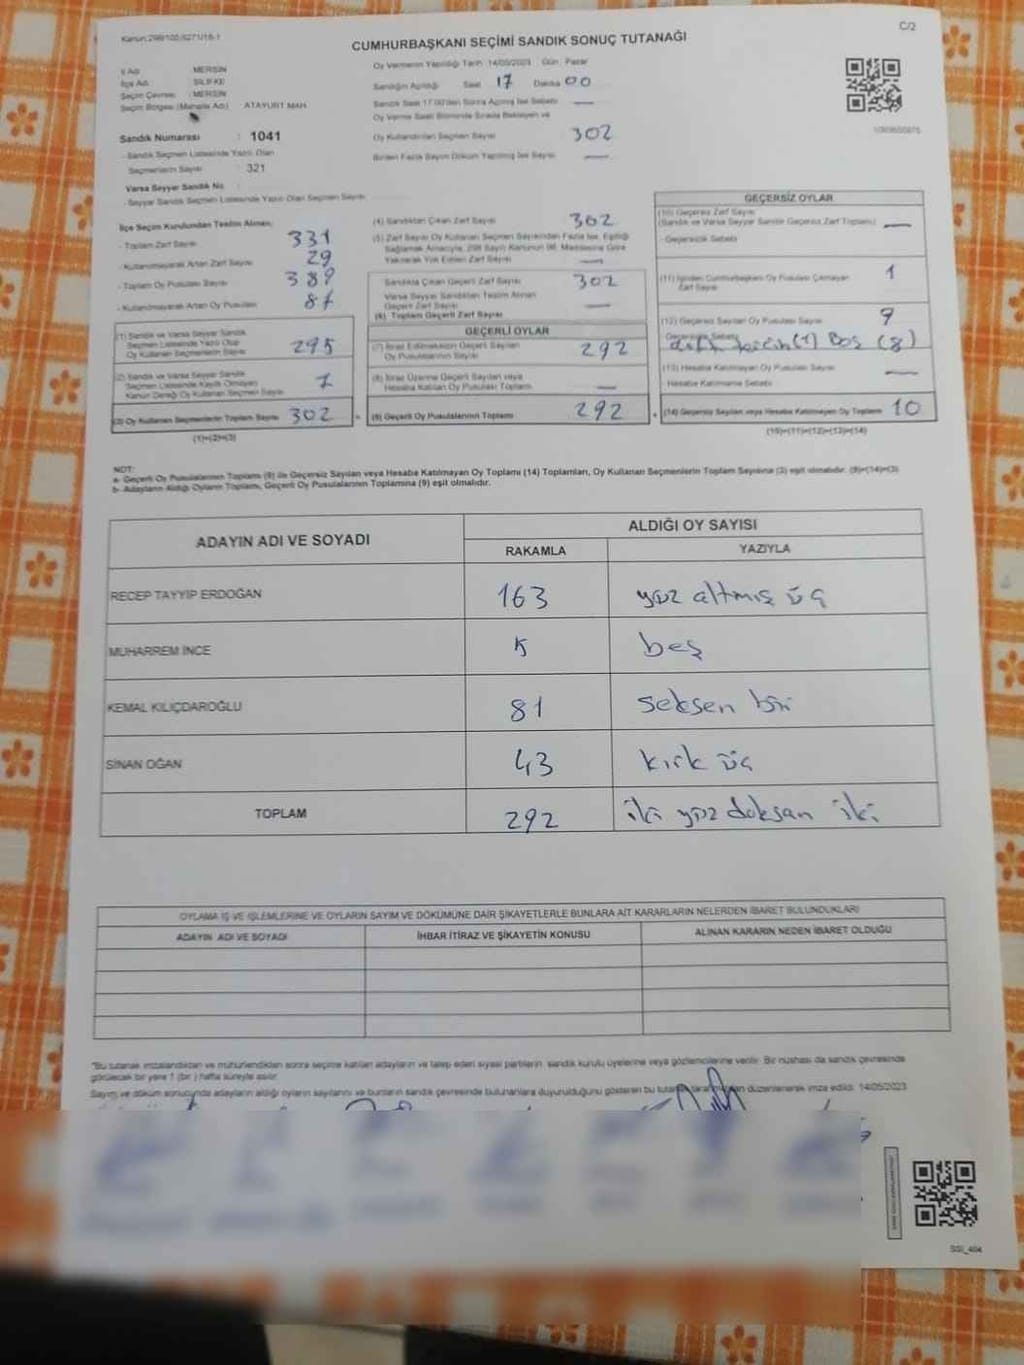 Kanun:298/105,6271/16-1
C/2
CUMHURBAŞKANI SEÇİMİ SANDIK SONUÇ TUTANAĞI
İl Adı : MERSİN
İlçe Adı : SİLİFKE
Seçim Çevresi : MERSİN
Seçim Bölgesi (Mahalle Adı) : ATAYURT MAH.
Oy Vermenin Yapıldığı Tarih: 14/05/2023 Gün: Pazar
Sandığın Açıldığı Saat 17 Dakika 00
Sandık Saat 17.00'den Sonra Açılmış İse Sebebi —
Oy Verme Saati Bitiminde Sırada Bekleyen ve
Oy Kullandırılan Seçmen Sayısı 302
Birden Fazla Sayım Döküm Yapılmış İse Sayısı —
Sandık Numarası : 1041
- Sandık Seçmen Listesinde Yazılı Olan
Seçmenlerin Sayısı : 321
Varsa Seyyar Sandık No :
- Seyyar Sandık Seçmen Listesinde Yazılı Olan Seçmen Sayısı :
İlçe Seçim Kurulundan Teslim Alınan:
- Toplam Zarf Sayısı 331
- Kullanılmayarak Artan Zarf Sayısı 29
- Toplam Oy Pusulası Sayısı 389
- Kullanılmayarak Artan Oy Pusulası 87
(1) Sandık ve Varsa Seyyar Sandık
Seçmen Listesinde Yazılı Olup
Oy Kullanan Seçmenlerin Sayısı 295
(2) Sandık ve Varsa Seyyar Sandık
Seçmen Listesinde Kayıtlı Olmayan
Kanun Gereği Oy Kullanan Seçmen Sayısı 7
(3) Oy Kullanan Seçmenlerin Toplam Sayısı 302
(1)+(2)=(3)
(4) Sandıktan Çıkan Zarf Sayısı 302
(5) Zarf Sayısı Oy Kullanan Seçmen Sayısından Fazla İse, Eşitliği
Sağlamak Amacıyla, 298 Sayılı Kanunun 98. Maddesine Göre
Yakılarak Yok Edilen Zarf Sayısı —
Sandıkta Çıkan Geçerli Zarf Sayısı 302
Varsa Seyyar Sandıktan Teslim Alınan
Geçerli Zarf Sayısı —
(6) Toplam Geçerli Zarf Sayısı
GEÇERLİ OYLAR
(7) İtiraz Edilmeksizin Geçerli Sayılan
Oy Pusulalarının Sayısı 292
(8) İtiraz Üzerine Geçerli Sayılan veya
Hesaba Katılan Oy Pusulası Toplamı —
(9) Geçerli Oy Pusulalarının Toplamı 292
GEÇERSİZ OYLAR
(10) Geçersiz Zarf Sayısı
(Sandık ve Varsa Seyyar Sandık Geçersiz Zarf Toplamı) —
- Geçersizlik Sebebi
(11) İçinden Cumhurbaşkanı Oy Pusulası Çıkmayan
Zarf Sayısı 1
(12) Geçersiz Sayılan Oy Pusulası Sayısı 9
Geçersizlik Sebebi (1) Boş (8)
(13) Hesaba Katılmayan Oy Pusulası Sayısı —
- Hesaba Katılmama Sebebi
(14) Geçersiz Sayılan veya Hesaba Katılmayan Oy Toplamı 10
(10)+(11)+(12)+(13)=(14)
NOT:
a- Geçerli Oy Pusulalarının Toplamı (9) ile Geçersiz Sayılan veya Hesaba Katılmayan Oy Toplamı (14) Toplamları, Oy Kullanan Seçmenlerin Toplam Sayısına (3) eşit olmalıdır. (9)+(14)=(3)
b- Adayların Aldığı Oyların Toplamı, Geçerli Oy Pusulalarının Toplamına (9) eşit olmalıdır.
ADAYIN ADI VE SOYADI
ALDIĞI OY SAYISI
RAKAMLA YAZIYLA
RECEP TAYYİP ERDOĞAN 163 yüz altmış üç
MUHARREM İNCE 5 beş
KEMAL KILIÇDAROĞLU 81 seksen bir
SİNAN OĞAN 43 kırk üç
TOPLAM 292 iki yüz doksan iki
OYLAMA İŞ VE İŞLEMLERİNE VE OYLARIN SAYIM VE DÖKÜMÜNE DAİR ŞİKAYETLERLE BUNLARA AİT KARARLARIN NELERDEN İBARET BULUNDUKLARI
ADAYIN ADI VE SOYADI İHBAR İTİRAZ VE ŞİKAYETİN KONUSU ALINAN KARARIN NEDEN İBARET OLDUĞU
"Bu tutanak imzalandıktan ve mühürlendikten sonra seçime katılan adayların ve talep eden siyasi partilerin sandık kurulu üyelerine veya gözlemcilerine verilir. Bir nüshası da sandık çevresinde
görülecek bir yere 1 (bir) hafta süreyle asılır.
Sayım ve döküm sonucunda adayların aldığı oyların sayılarını ve bunların sandık çevresinde bulunanlara duyurulduğunu gösteren bu tutanak tarafımızdan düzenlenerek imza edildi. 14/05/2023
SSI_404